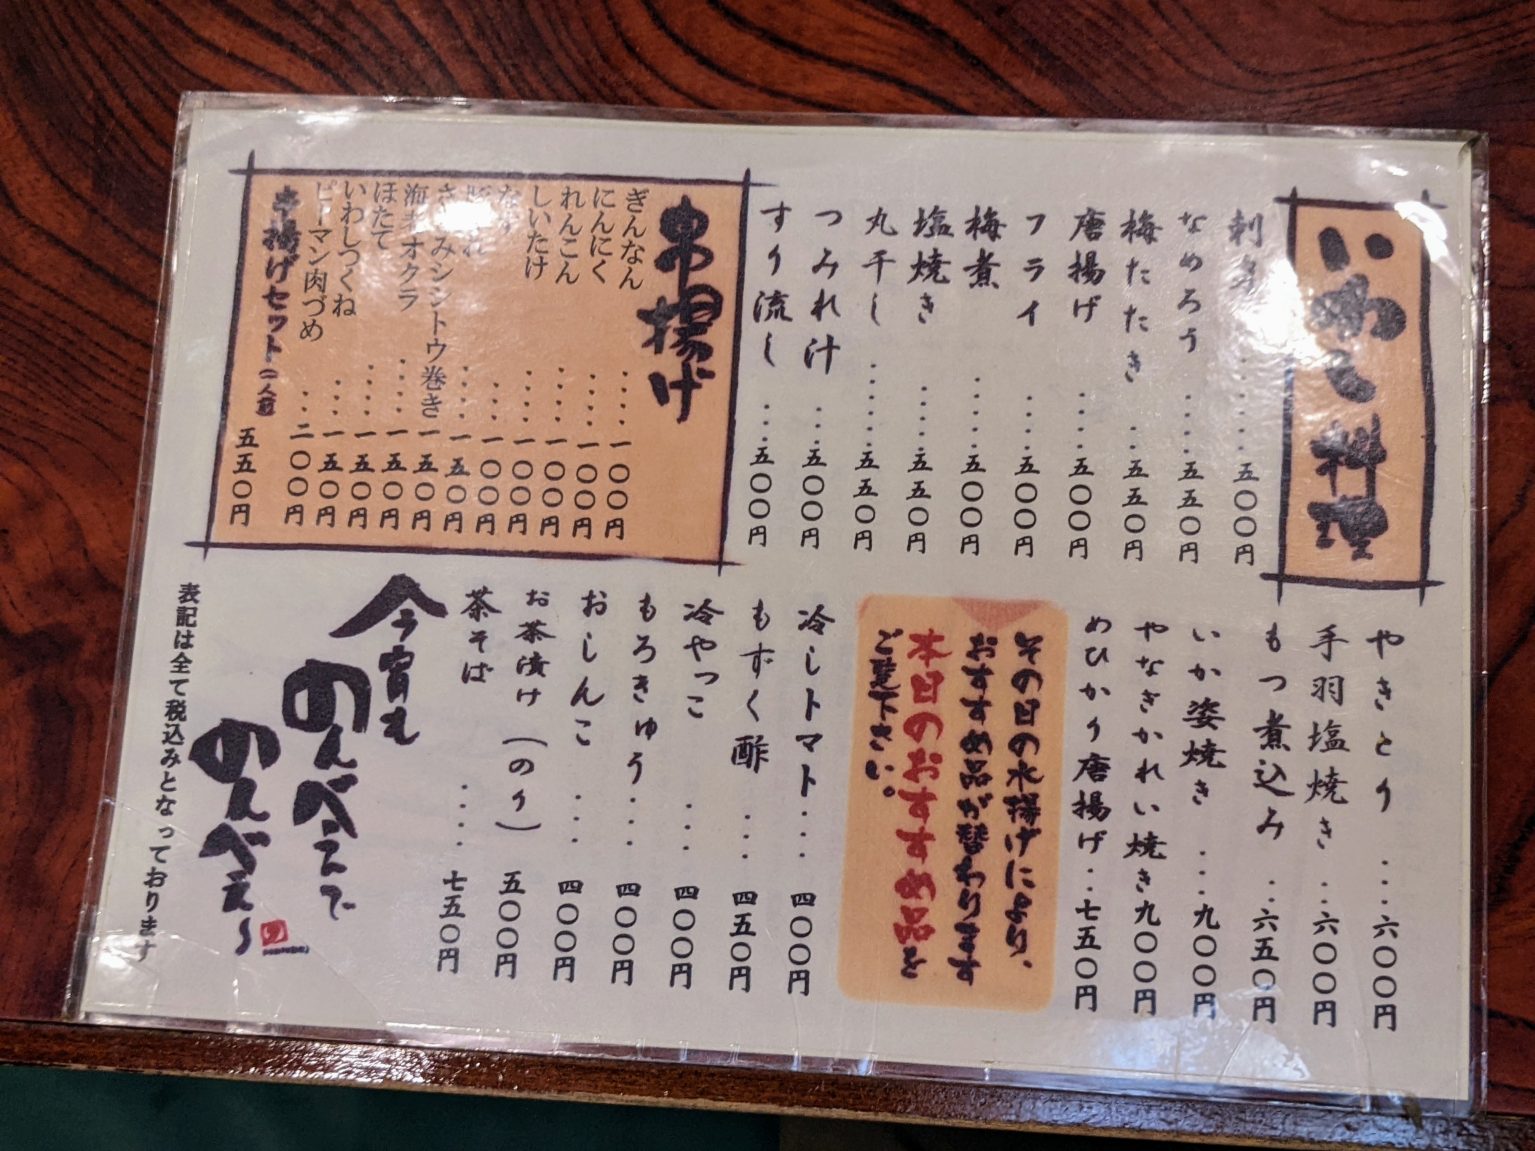 いわし料理
刺身......五〇〇円
なめろう.....五五〇円
梅たたき...五五〇円
唐揚げ.....五〇〇円
フライ.....五〇〇円
梅煮.......五〇〇円
塩焼き.....五五〇円
丸干し......五五〇円
つみれ汁...五〇〇円
すり流し....五〇〇円
串揚げ
ぎんなん.....一〇〇円
にんにく.....一〇〇円
れんこん.....一〇〇円
しいたけ.....一〇〇円
なす....一〇〇円
....一五〇円
ささみシシトウ巻き一五〇円
海老オクラ....一五〇円
ほたて.....一五〇円
いわしつくね...一五〇円
ピーマン肉づめ...二〇〇円
串揚げセット(一人前)五五〇円
やきとり...六〇〇円
手羽塩焼き...六〇〇円
もつ煮込み..六五〇円
いか姿焼き...九〇〇円
やなぎかれい焼き九〇〇円
めひかり唐揚げ..七五〇円
その日の水揚げにより、
おすすめ品が替わります
本日のおすすめ品を
ご覧下さい。
冷しトマト...四〇〇円
もずく酢...四五〇円
冷やっこ...四〇〇円
もろきゅう...四〇〇円
おしんこ...四〇〇円
お茶漬け(のり)五〇〇円
茶そば....七五〇円
今宵も
のんべえで
のんべぇ〜
表記は全て税込みとなっております